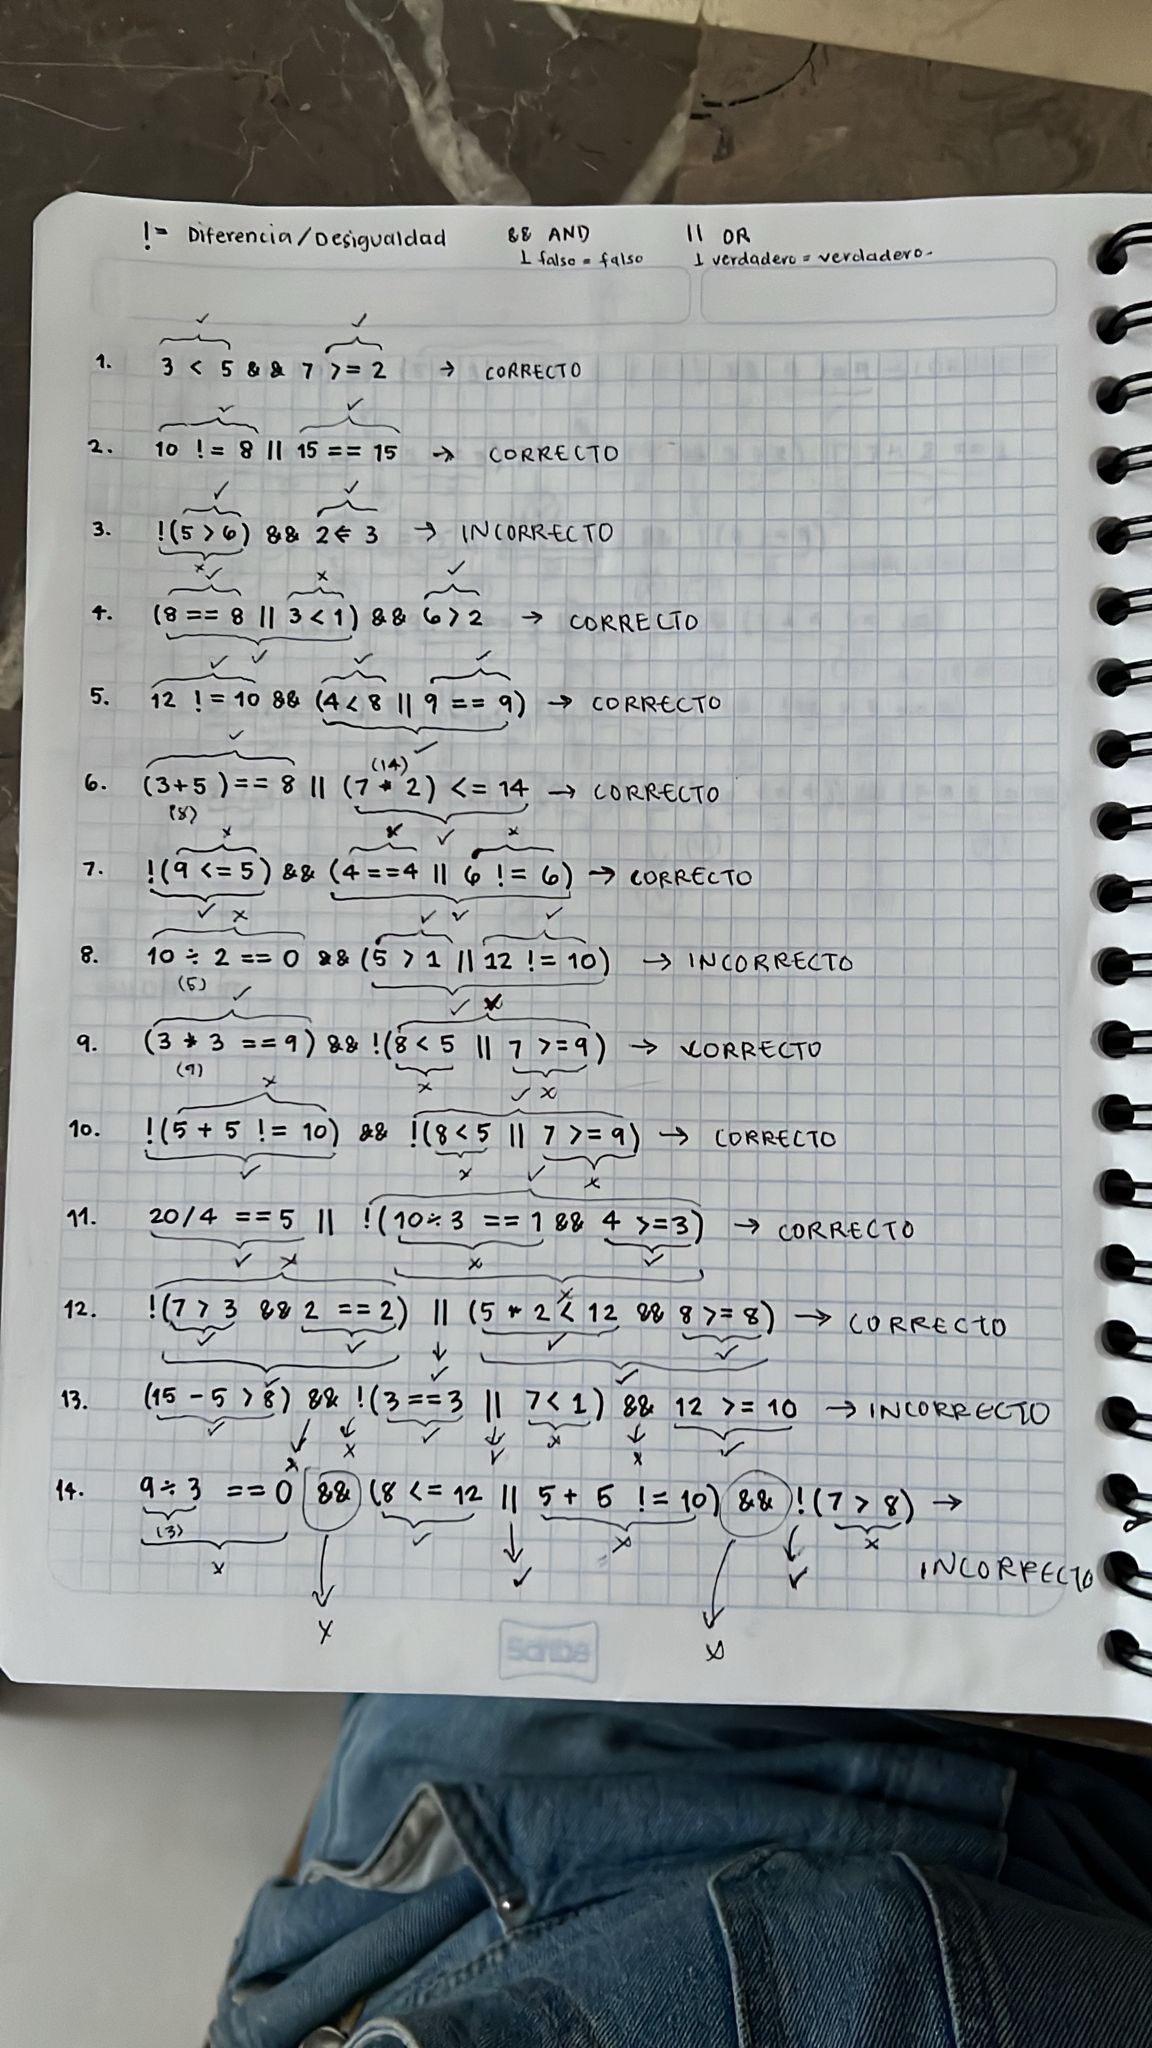 != Diferencia/Desigualdad && AND || OR
1 falso = falso 1 verdadero = verdadero.
1. 3 < 5 && 7 >= 2 → CORRECTO
2. 10 != 8 || 15 == 15 → CORRECTO
3. !(5 > 6) && 2 <= 3 → INCORRECTO
4. (8 == 8 || 3 < 1) && 6 > 2 → CORRECTO
5. 12 != 10 && (4 < 8 || 9 == 9) → CORRECTO
(14)
6. (3+5) == 8 || (7 * 2) <= 14 → CORRECTO
(8)
7. !(9 <= 5) && (4 == 4 || 6 != 6) → CORRECTO
8. 10 ÷ 2 == 0 && (5 > 1 || 12 != 10) → INCORRECTO
(5)
9. (3 * 3 == 9) && !(8 < 5 || 7 >= 9) → CORRECTO
(9)
10. !(5 + 5 != 10) && !(8 < 5 || 7 >= 9) → CORRECTO
11. 20/4 == 5 || !(10 ÷ 3 == 1 && 4 >= 3) → CORRECTO
12. !(7 > 3 && 2 == 2) || (5 * 2 < 12 && 8 >= 8) → CORRECTO
13. (15 - 5 > 8) && !(3 == 3 || 7 < 1) && 12 >= 10 → INCORRECTO
14. 9 ÷ 3 == 0 && (8 <= 12 || 5 + 5 != 10) && !(7 > 8) →
(3)
INCORRECTO
Scribe